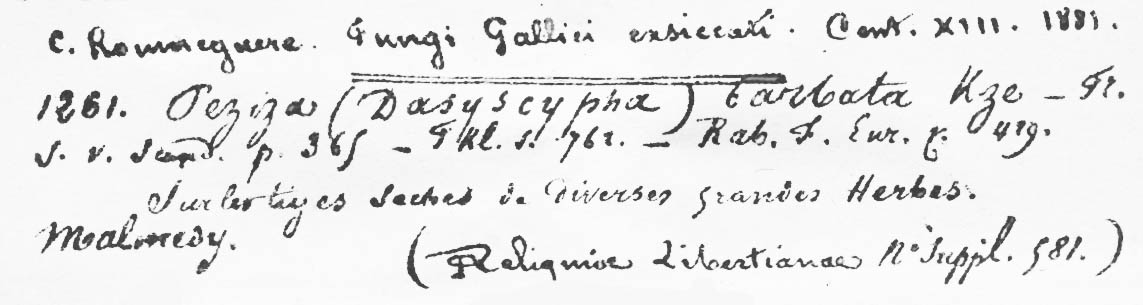 C. Roumeguere. Fungi Gallici exsiccati. Cent. XIII. 1881.
1261. Peziza (Dasyscypha) barbata Kze – Fr.
S. v. Scand. p. 365 – Fkl. S. 762. – Rab. F. Eur. n. 419.
Sur les tiges seches de Diverses grandes Herbes.
Malmedy. (Reliquiae Libertianae No Suppl. 581.)